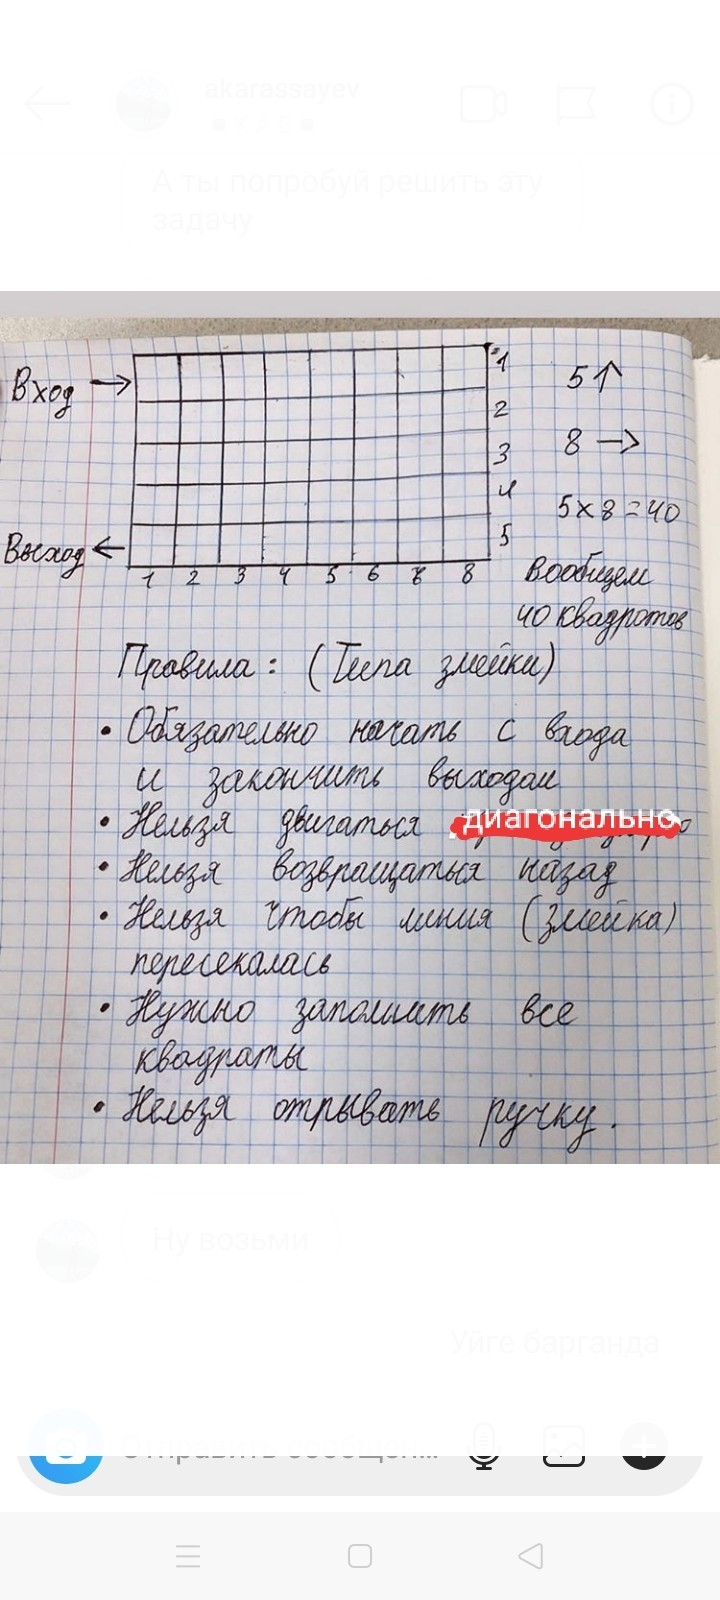 akarassayev
А ты попробуй решить эту
задачу
Вход →
1
2
3
4
5
5↑
8 →
5×8=40
Выход ←
1 2 3 4 5 6 7 8
Вообщем
40 квадротов
Правила: (Типа змейки)
• Обязательно начать с входа
и закончить выходом
• Нельзя двигаться диагонально
• Нельзя возвращаться назад
• Нельзя чтобы линия (змейка)
пересекалась
• Нужно заполнить все
квадраты
• Нельзя отрывать ручку.
Ну возьми
Уйге барганда
Отправить сообщен...